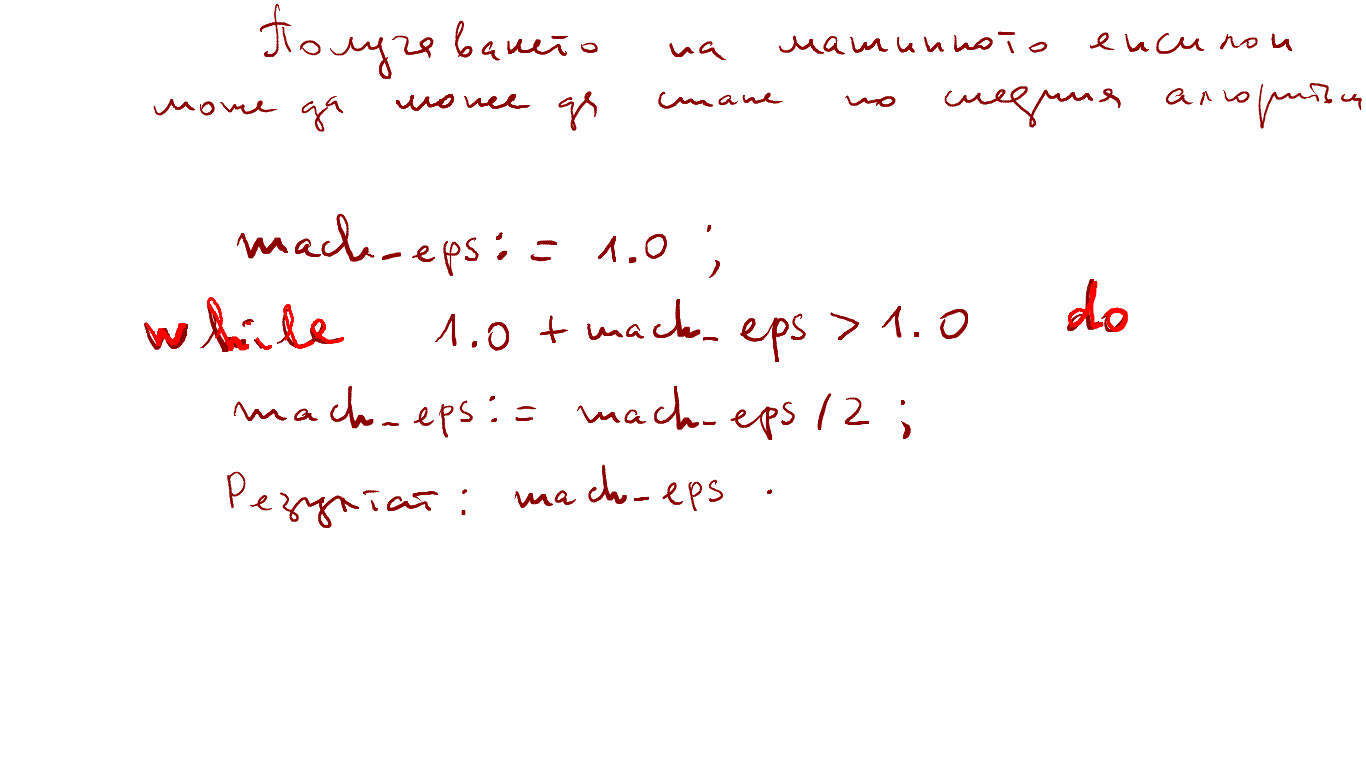 Получаването на машинното епсилон
може да може да стане по следния алгоритъм
mach_eps := 1.0 ;
while 1.0 + mach_eps > 1.0 do
mach_eps := mach_eps / 2 ;
Резултат : mach_eps .